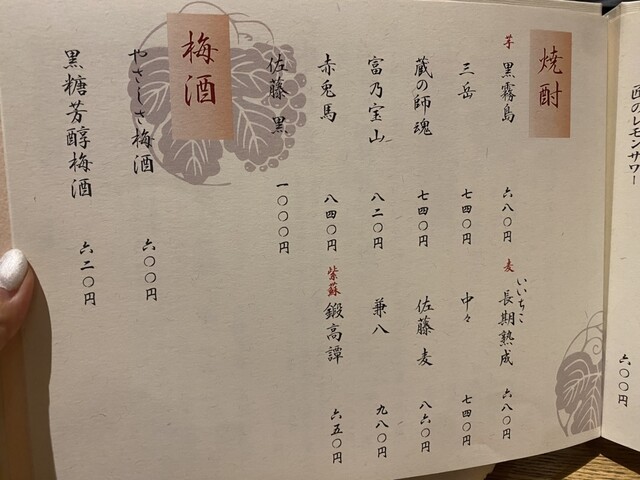 匠のレモンサワー
六〇〇円
焼酎
芋 黒霧島 六八〇円
三岳 七四〇円
蔵の師魂 七四〇円
富乃宝山 八二〇円
赤兎馬 八四〇円
佐藤 黒 一〇〇〇円
麦 いいちこ 長期熟成 六八〇円
中々 七四〇円
佐藤 麦 八六〇円
兼八 九八〇円
紫蘇 鍛高譚 六五〇円
梅酒
やさしさ梅酒 六〇〇円
黒糖芳醇梅酒 六二〇円